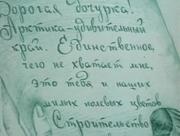 Дорогая дочурка!
Арктика-удивительный
край. Единственное,
чего не хватает мне,
это тебя и наших
милых полевых цветов
Строительство